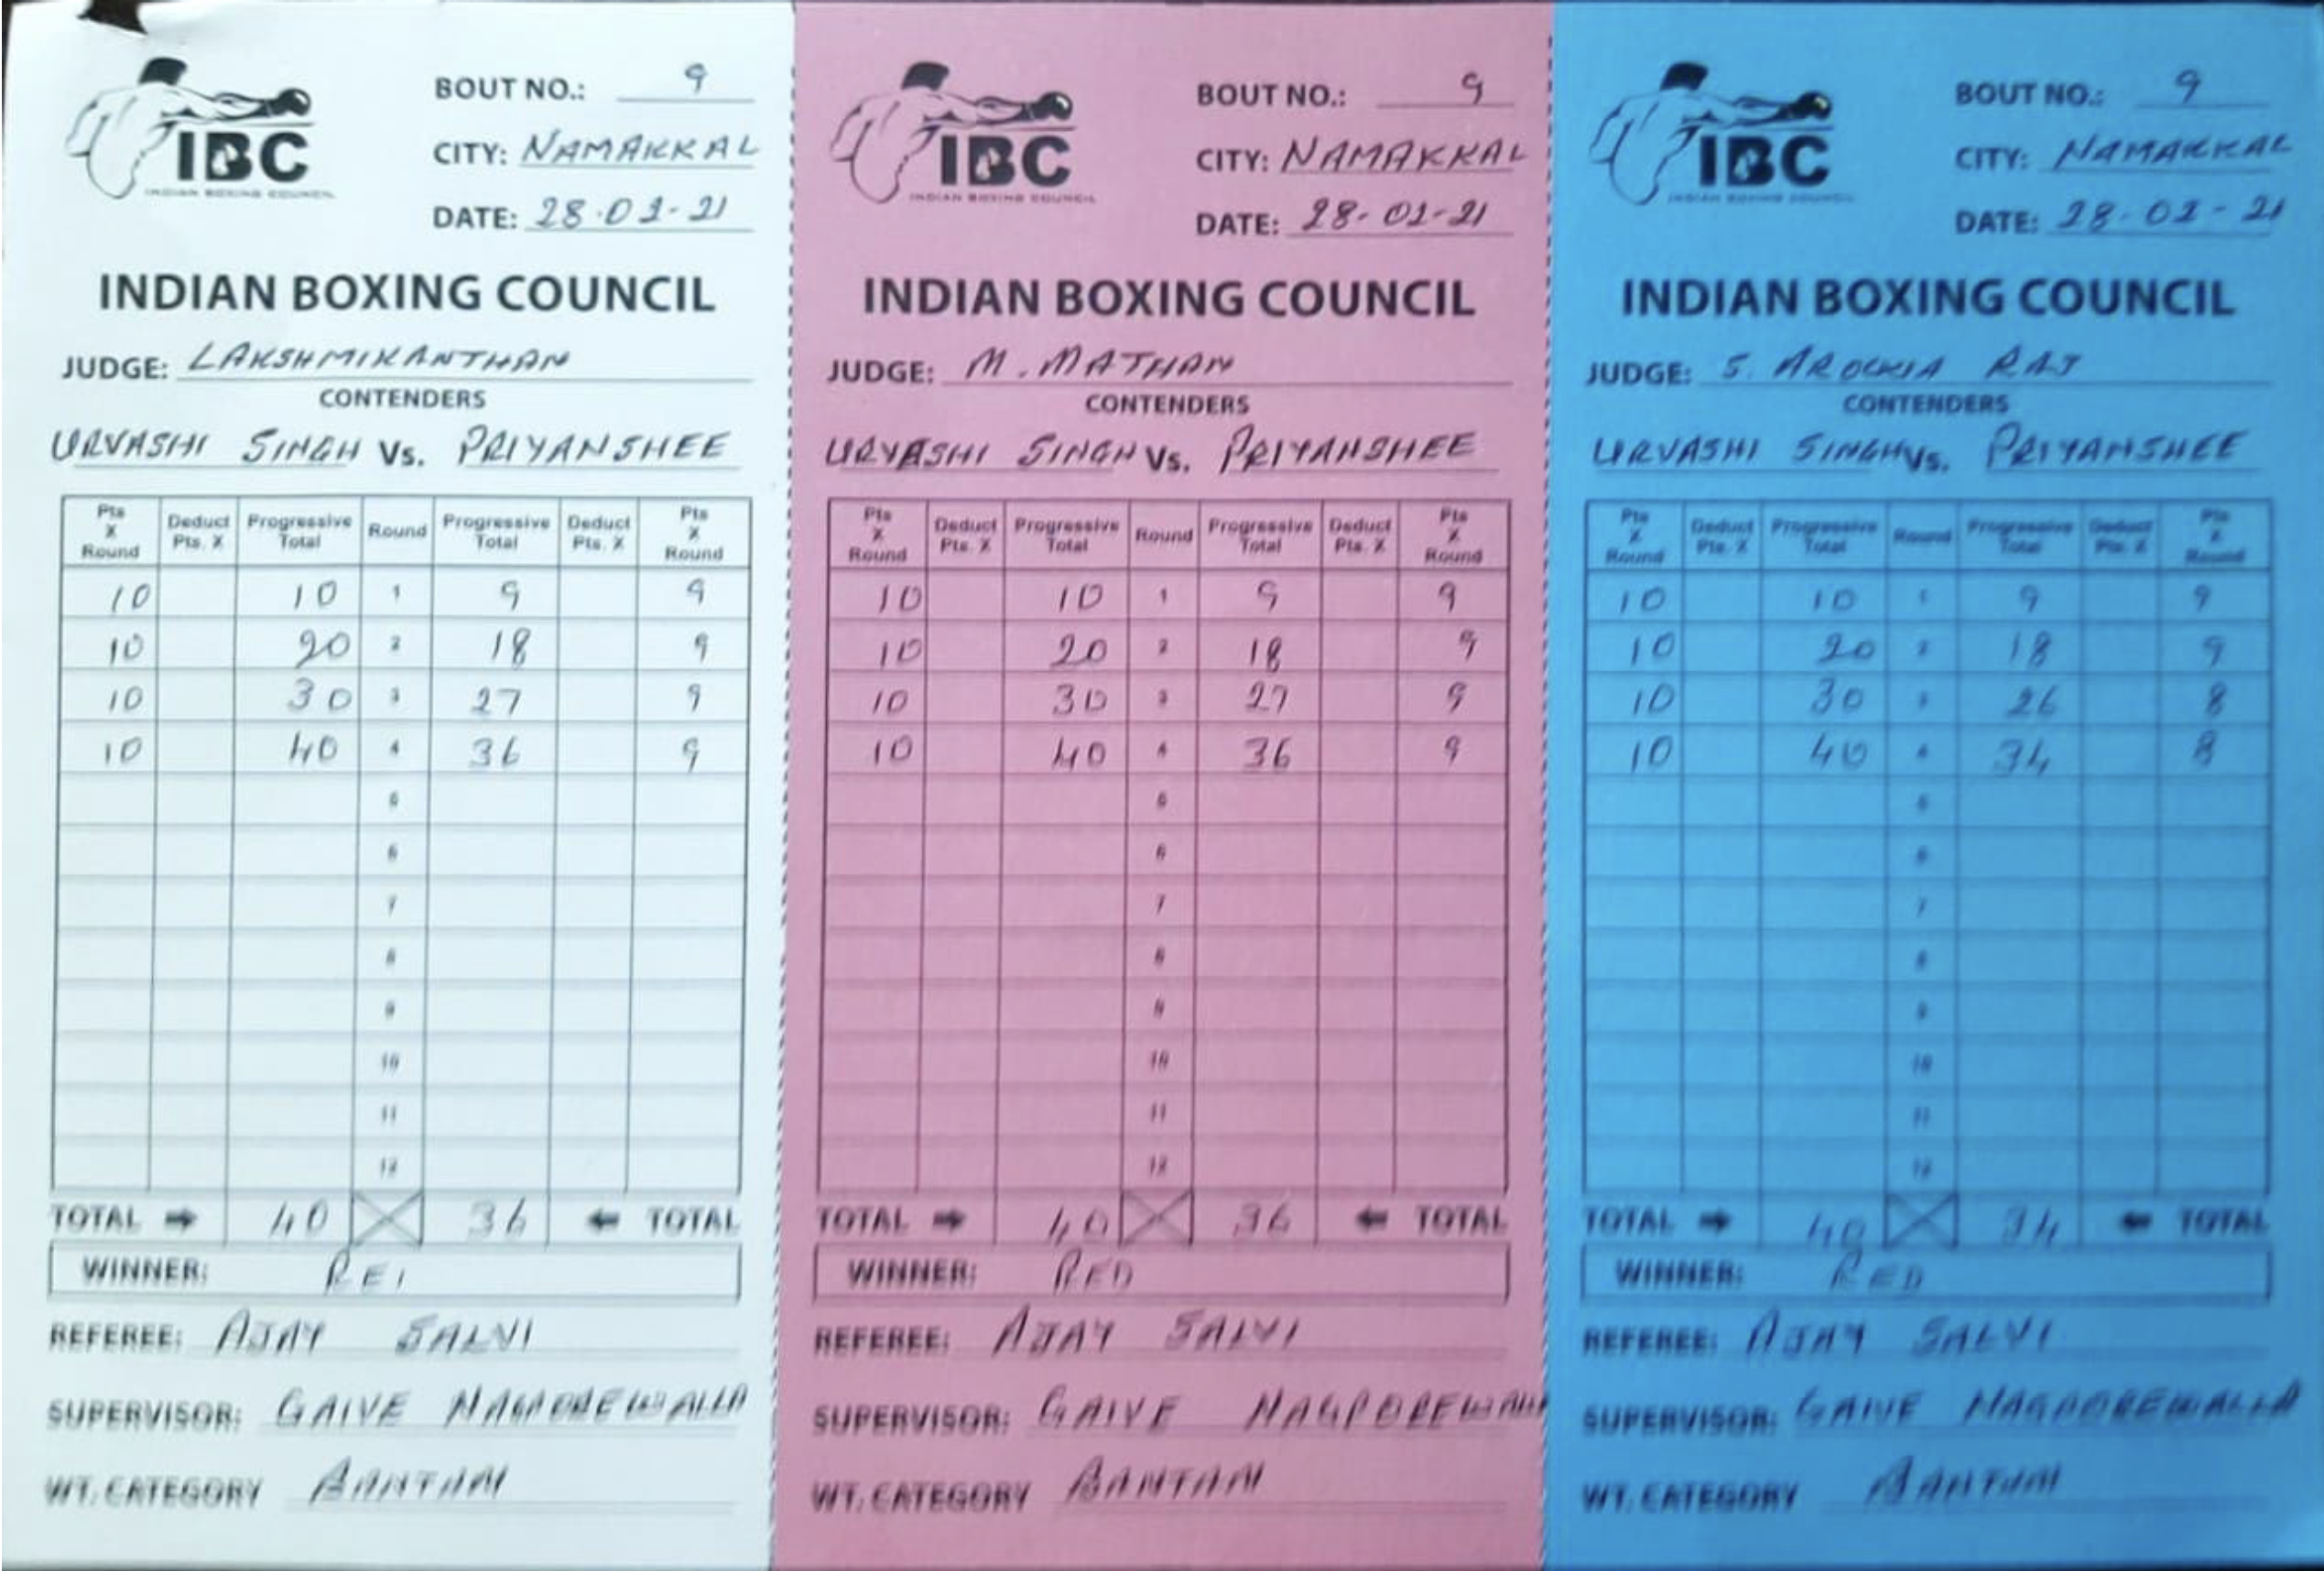 IBC
INDIAN BOXING COUNCIL
BOUT NO.: 9
CITY: NAMAKKAL
DATE: 28-02-21
INDIAN BOXING COUNCIL
JUDGE: LAKSHMIKANTHAN
CONTENDERS
URVASHI SINGH Vs. PRIYANSHEE
Pts X Round Deduct Pts. X Progressive Total Round Progressive Total Deduct Pts. X Pts X Round
10 10 1 9 9
10 20 2 18 9
10 30 3 27 9
10 40 4 36 9
5
6
7
8
9
10
11
12
TOTAL 40 36 TOTAL
WINNER:
REFEREE: AJAY SALVI
SUPERVISOR: GAIVE NAGPOREWALLA
WT. CATEGORY BANTAM
IBC
INDIAN BOXING COUNCIL
BOUT NO.: 9
CITY: NAMAKKAL
DATE: 28-02-21
INDIAN BOXING COUNCIL
JUDGE: M. MATHAN
CONTENDERS
URVASHI SINGH Vs. PRIYANSHEE
Pts X Round Deduct Pts. X Progressive Total Round Progressive Total Deduct Pts. X Pts X Round
10 10 1 9 9
10 20 2 18 9
10 30 3 27 9
10 40 4 36 9
5
6
7
8
9
10
11
12
TOTAL 40 36 TOTAL
WINNER: RED
REFEREE: AJAY SALVI
SUPERVISOR: GAIVE
WT. CATEGORY BANTAM
IBC
INDIAN BOXING COUNCIL
BOUT NO.: 9
CITY: NAMAKKAL
DATE: 28-02-21
INDIAN BOXING COUNCIL
JUDGE: S. AROCKIA RAJ
CONTENDERS
URVASHI SINGH Vs. PRIYANSHEE
Pts X Round Deduct Pts. X Progressive Total Round Progressive Total Deduct Pts. X Pts X Round
10 10 1 9 9
10 20 2 18 9
10 30 3 26 8
10 40 4 34 8
5
6
7
8
9
10
11
12
TOTAL 40 34 TOTAL
WINNER: RED
REFEREE: AJAY SALVI
SUPERVISOR: GAIVE NAGPOREWALLA
WT. CATEGORY BANTAM